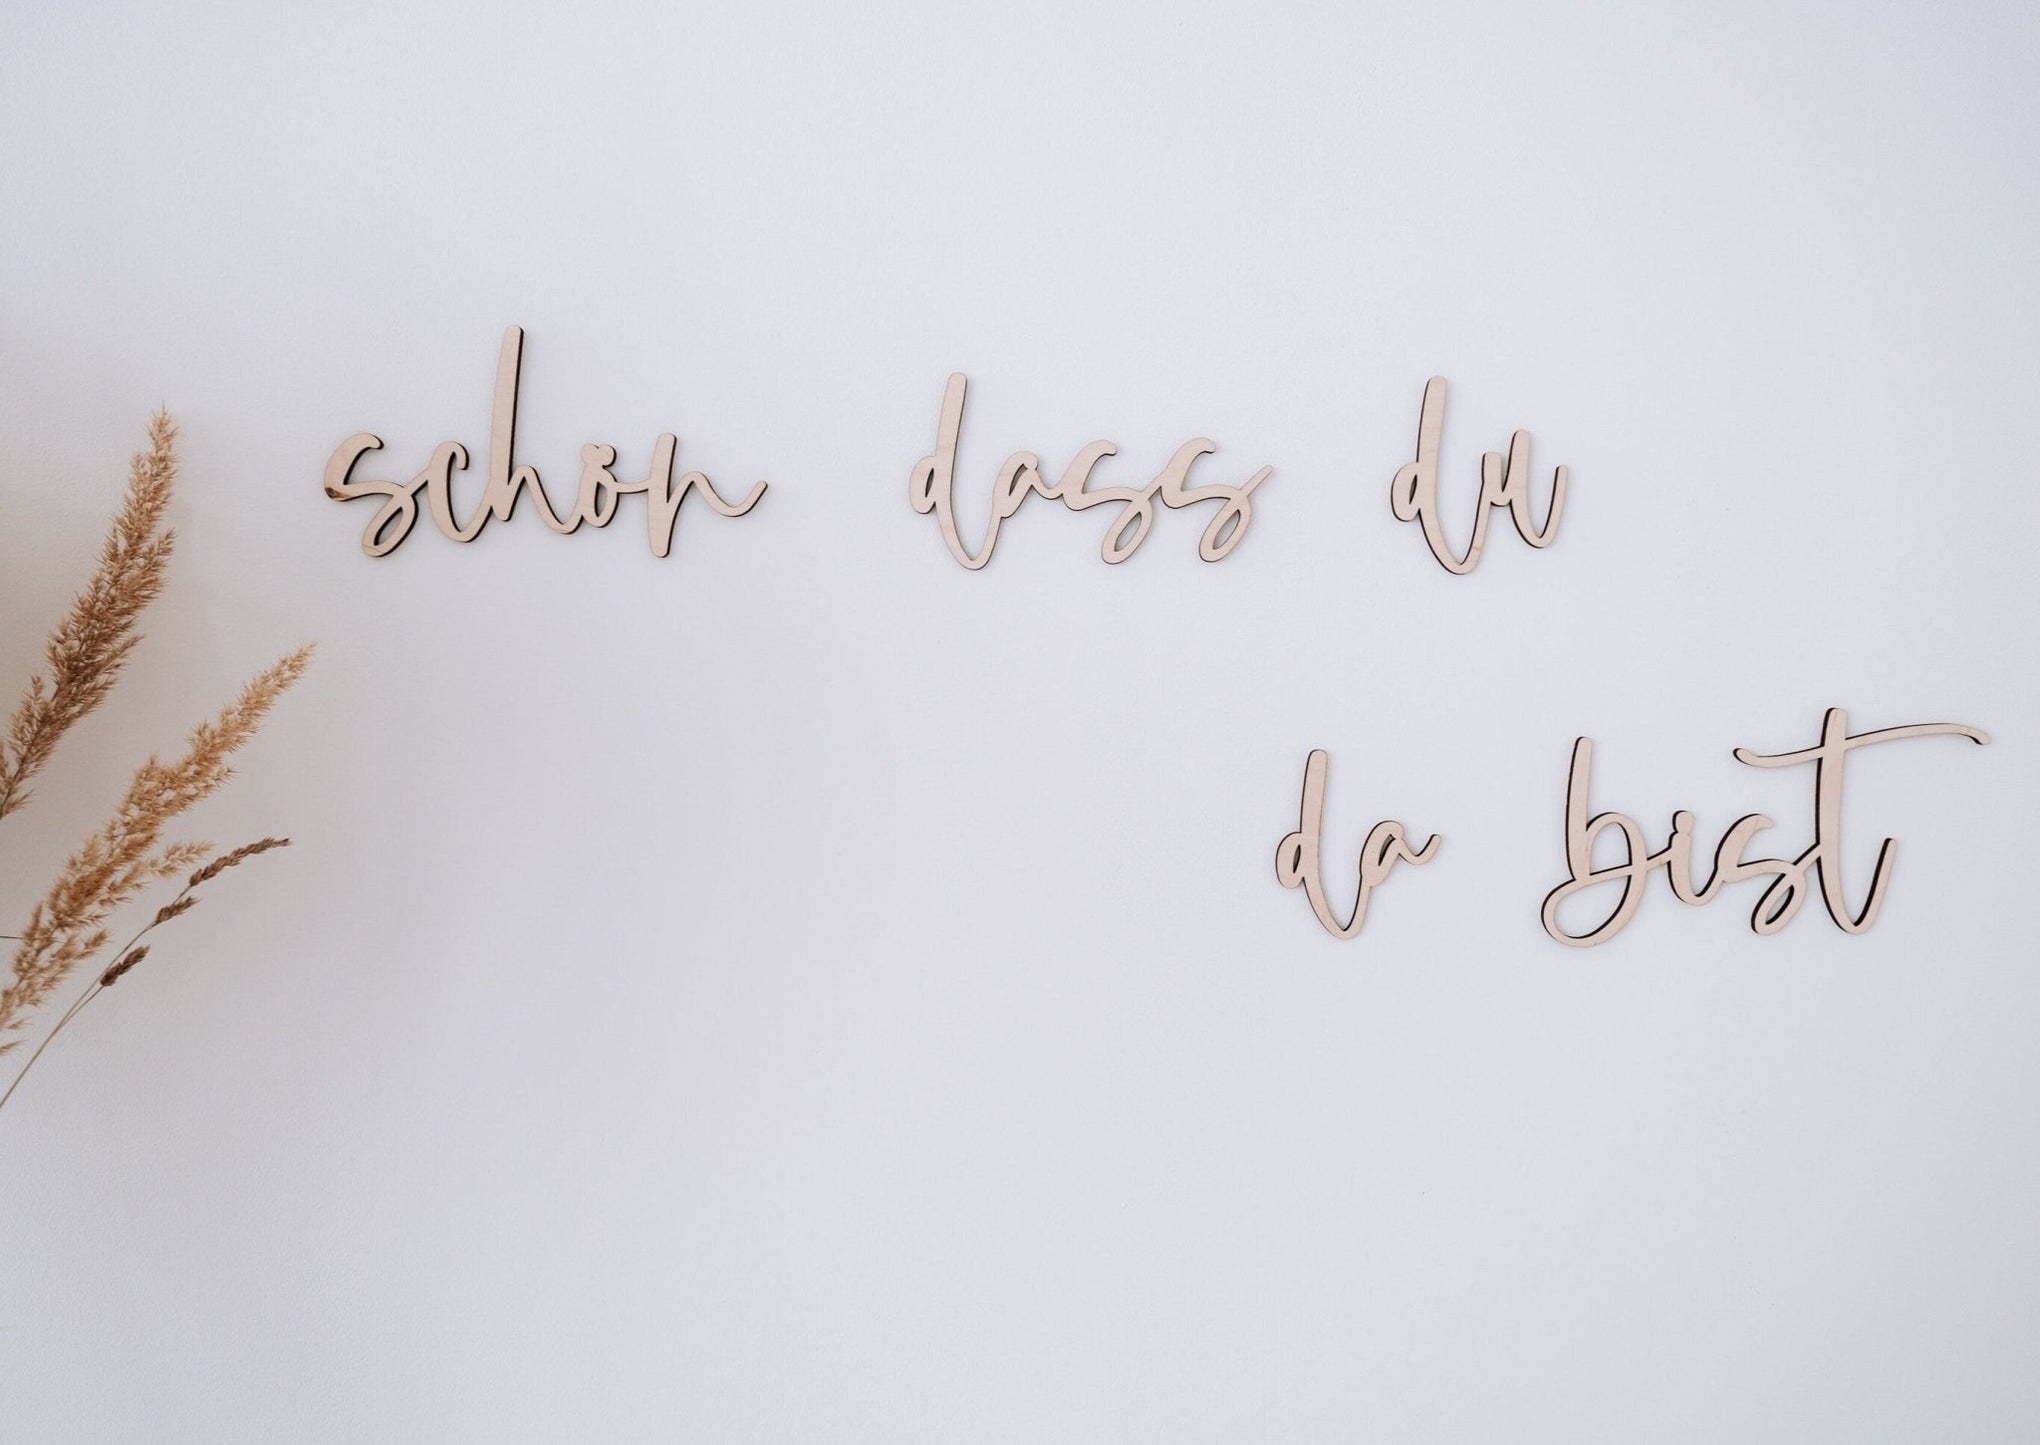 schön dass du
da bist